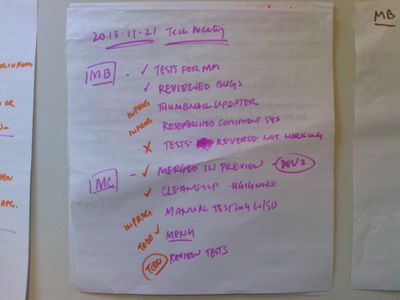 2013-11-21 Tech Meeting
MB - ✓ TESTS FOR MM
✓ REVIEWED BUGS
INPROG THUMBNAIL UPDATER
INPROG RESEARCHED COMMENT SYS
X TESTS- REVERSE NOT WORKING
MC - ✓ MERGED IN PREVIEW - DEV2
✓ CLEANED UP HGIGNORE
INPROG MANUAL TESTING W/SO
TODO ✓ MENG
TODO REVIEW TESTS
MB
OR